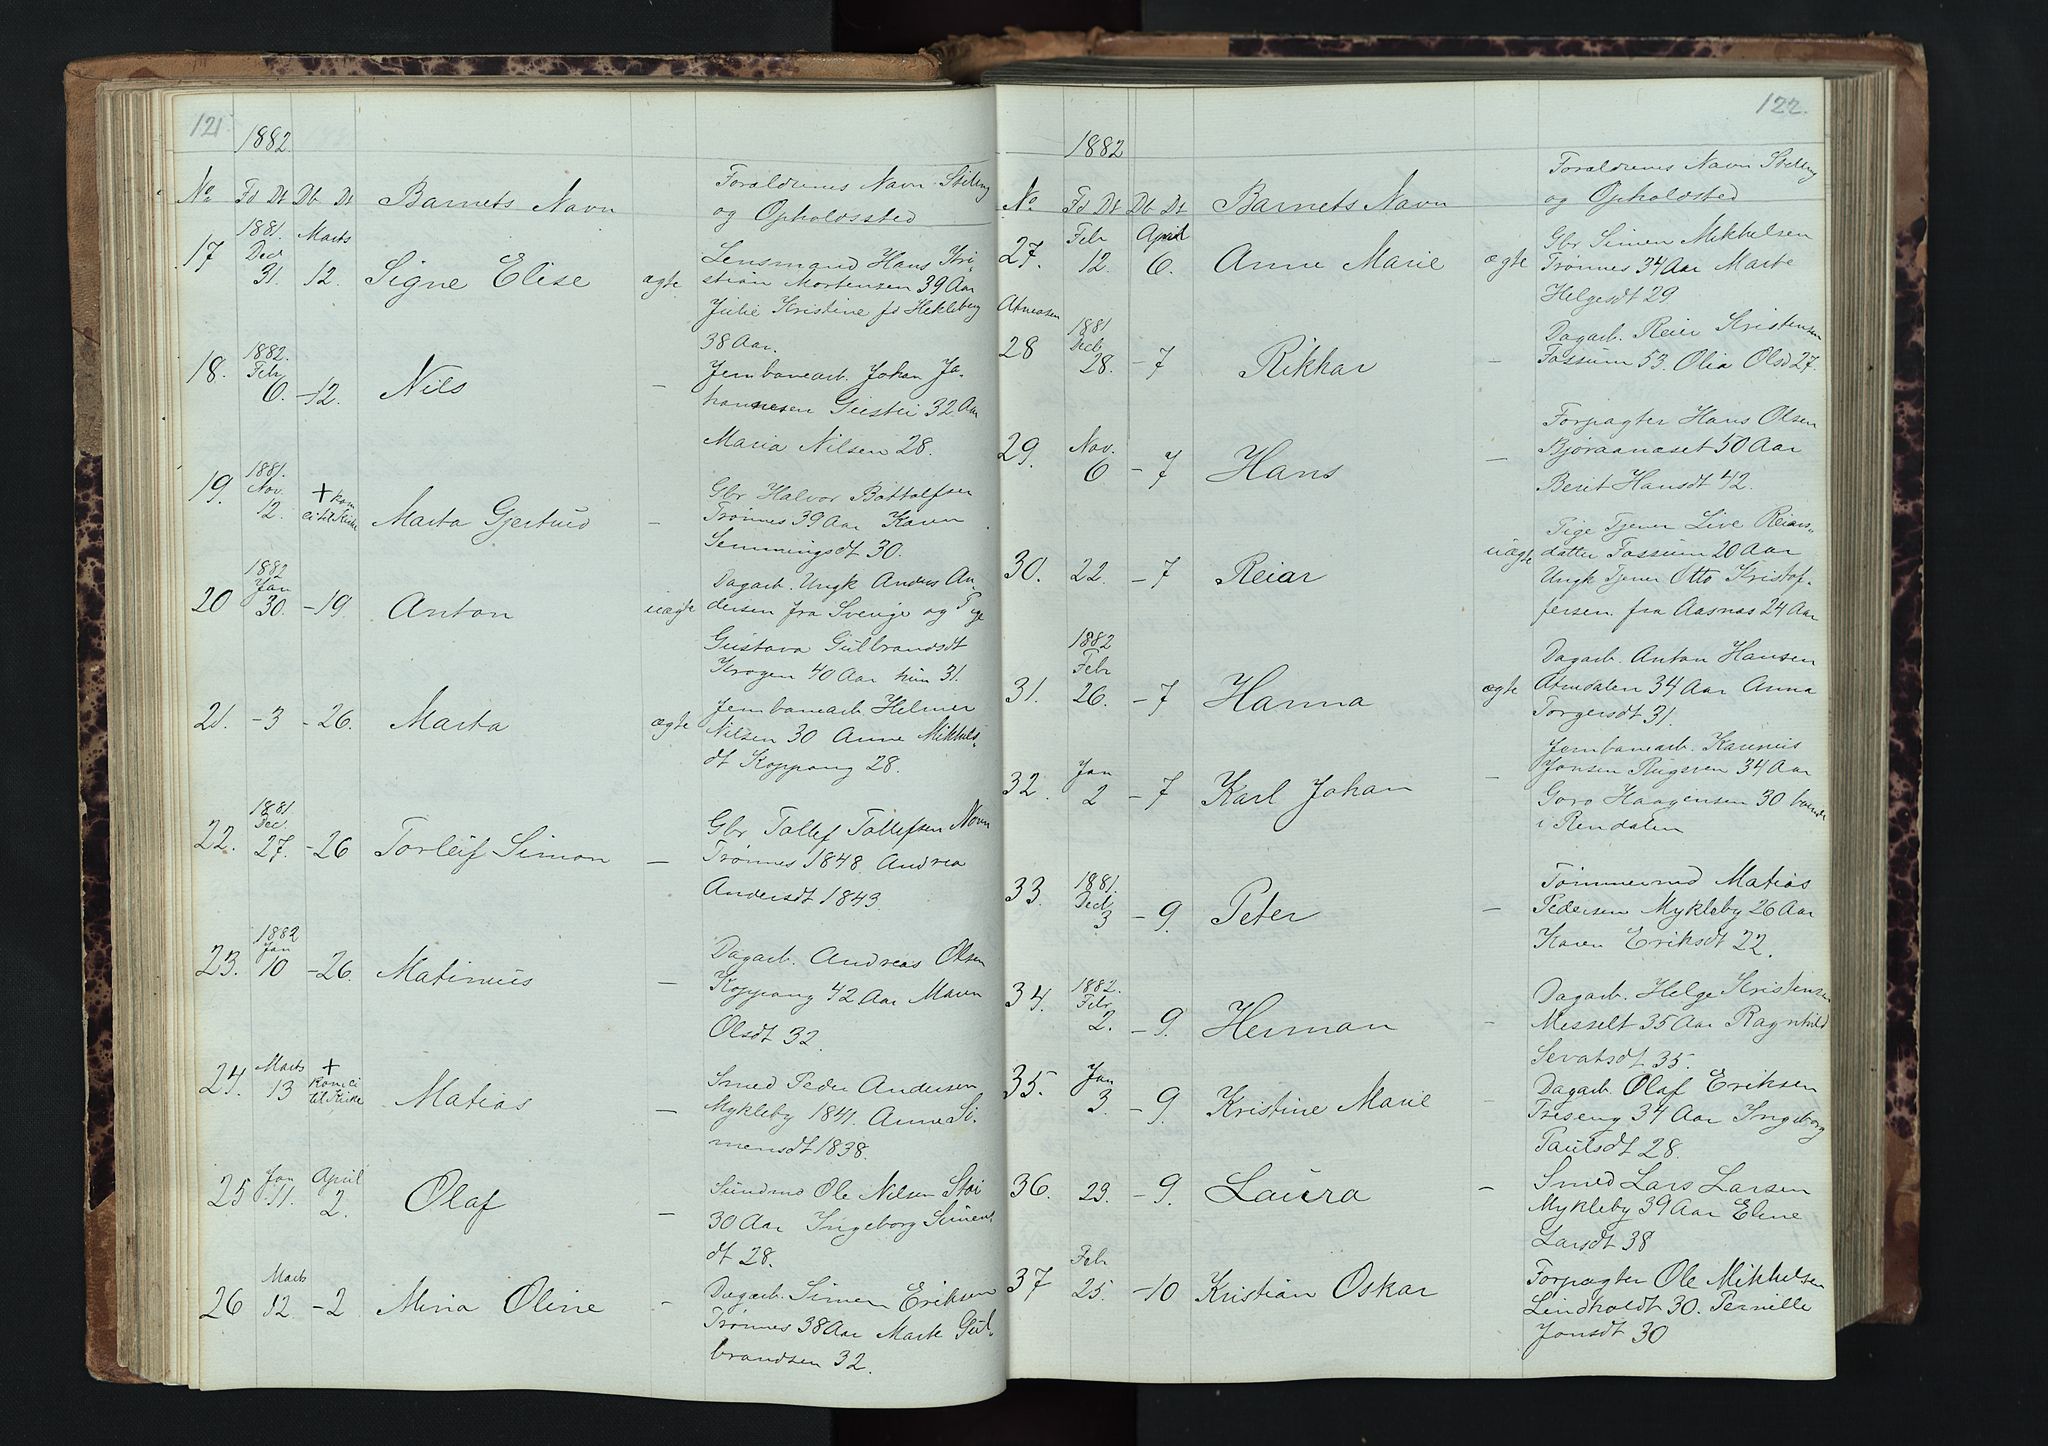 121.
1882.
No Fd Dt Db Dt Barnets Navn Forældrenes Navn Stilling
og Opholdssted
17 1881. Decr 31. Marts 12. Signe Elise ægte Lensmand Hans Kri-
stian Mortensen 39 Aar
Julie Kristine fd Hekleberg
38 Aar.
18. 1882. Febr 6. -12. Nils — Jernbanearb. Johan Jo-
hannesen 32 Aar
Maria Nilsen 28.
19. 1881. Nov. 12. + kom ei til Kirke Marta Gjertrud — Gbr Halvor Bottolfsen
Trønnes 39 Aar Karen
Semmingsdt 30.
20 1882 Jan 30. -19. Anton uægte Dagarb. Ungk Anders An-
dersen fra Sverige og Pige
Gustava Gulbrandsdt
Krogen 40 Aar hun 31.
21. -3 -26. Marta ægte Jernbanearb. Helmer
Nilsen 30 Anne Mikkels-
dt Koppang 28.
22. 1881. Dec. 27. -26 Torleif Simon — Gbr Tollef Tollefsen
Trønnes 1848. Andrea
Andersdt 1843.
23. 1882 Jan 10 -26. Matinius — Dagarb. Andreas Olsen
Koppang 42 Aar Maren
Olsdt 32.
24. Marts 13 + kom ei til Kirke Matias — Smed Peder Andersen
Mykleby 1841. Anne Si-
mensdt 1838.
25 Jan 11. April 2. Olaf — Ole Nilsen Stai
30 Aar Ingeborg Simens
dt 28.
26 Marts 12. -2 Mina Oline - Dagarb. Simen Eriksen
Trønnes 38 Aar Marte Gul-
brandsen 32.
122.
1882
No Fd Dt Db Dt Barnets Navn Forældrenes Navn Stilling
og Opholdsted
27. Febr 12. April 6. Anne Marie ægte Gbr Simen Mikkelsen
Trønnes 34 Aar Marte
Helgesdt 29
Atneosen
28 1881 Decb 28. -7 Rikkar - Dagarb. Reier Kristensen
Fossum 53. Olia Olsd 27.
29. Nov. 6 -7 Hans — Forpagter Hans Olsen
Bjøraanæset 50 Aar
Berit Hansdt 42.
30. 22. -7 Reiar uægte Pige Tjener Live Reiars-
datter Fossum 20 Aar
Ungk Tjener Otto Kristof-
fersen fra Aasnæs 24 Aar
31. 1882 Febr 26. -7 Hanna ægte Dagarb. Anton Hansen
Atnedalen 34 Aar Anna
Torgersdt 31.
32. Jan 2 -7 Karl Johan - Jernbanearb. Karinius
Jonsen 34 Aar
Goro Haagensen 30 boende
i Rendalen
33. 1881. Decb 3 -9. Peter — Tømmermd Matias
Pedersen Mykleby 26 Aar
Karen Eriksdt 22.
34. 1882. Febr 2. -9. Herman - Dagarb. Helge Kristensen
Messelt 35 Aar Ragnhild
Sevatsdt 35.
35. Jan 3. -9. Kristine Marie - Dagarb. Olaf Eriksen
Treseng 34 Aar Ingeborg
Paulsdt 28.
36. 23. -9. Laura - Smed Lars Larsen
Mykleby 39 Aar Eline
Larsdt 38
37 Febr 25. -10 Kristian Oskar Forpagter Ole Mikkelsen
Lindholdt 30. Pernille
Jonsdt 30